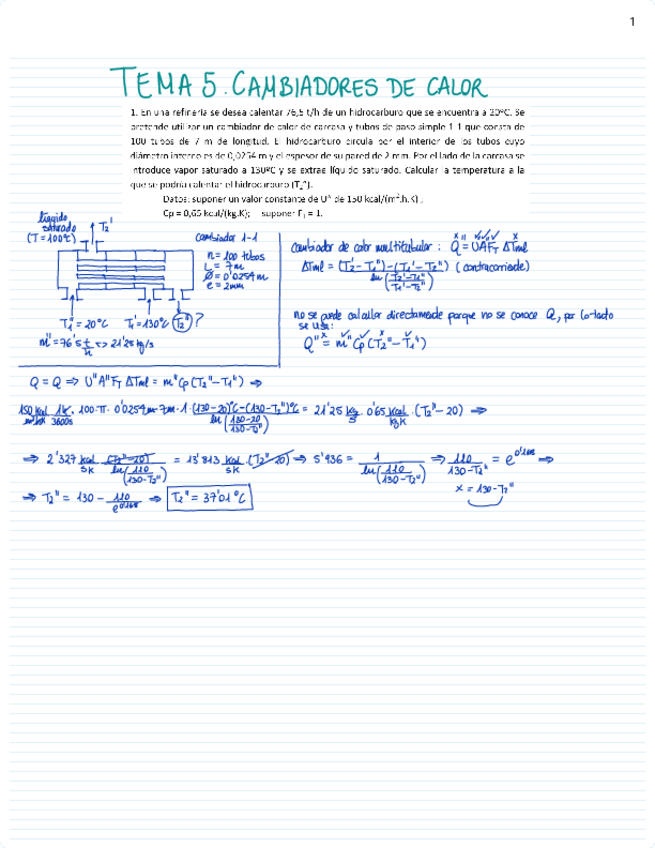 1
TEMA 5. CAMBIADORES DE CALOR
1. En una refinería se desea calentar 76,5 t/h de un hidrocarburo que se encuentra a 20ºC. Se
pretende utilizar un cambiador de calor de carcasa y tubos de paso simple 1-1 que consta de
100 tubos de 7 m de longitud. El hidrocarburo circula por el interior de los tubos cuyo
diámetro interno es de 0,0254 m y el espesor de su pared de 2 mm. Por el lado de la carcasa se
introduce vapor saturado a 130ºC y se extrae líquido saturado. Calcular la temperatura a la
que se podría calentar el hidrocarburo (T2").
Datos: suponer un valor constante de U" de 150 kcal/(m2.h.K) ;
Cp = 0,65 kcal/(kg.K); suponer FT = 1.
líquido
saturado
(T = 100ºC)
T2'
cambiador 1-1
n = 100 tubos
L = 7m
Ø = 0'0254m
e = 2mm
T1" = 20ºC T1' = 130ºC T2" ?
m" = 76'5 t/h => 21'25 kg/s
cambiador de calor multitubular : Q = UAFT ΔTml
ΔTml = (T2' - T1") - (T1' - T2") / ln((T2' - T1")/(T1' - T2")) (contracorriente)
no se puede calcular directamente porque no se conoce Q, por lo tanto
se usa:
Q" = m" Cp (T2" - T1")
Q = Q => U"A"FT ΔTml = m" Cp (T2" - T1") =>
150 kcal 1h · 100·π· 0'0254m·7m·1·(130-20)ºC-(130-T2")ºC / ln((130-20)/(130-T2")) = 21'25 kg/s · 0'65 kcal/kgK · (T2" - 20) =>
3600s
=> 2'327 kcal/sK (T2"-20) / ln(110/(130-T2")) = 13'813 kcal/sK (T2"-20) => 5'936 = 1 / ln(110/(130-T2")) => 110/(130-T2") = e^0'168 =>
x = 130-T2"
=> T2" = 130 - 110/e^0'168 => T2" = 37'01ºC